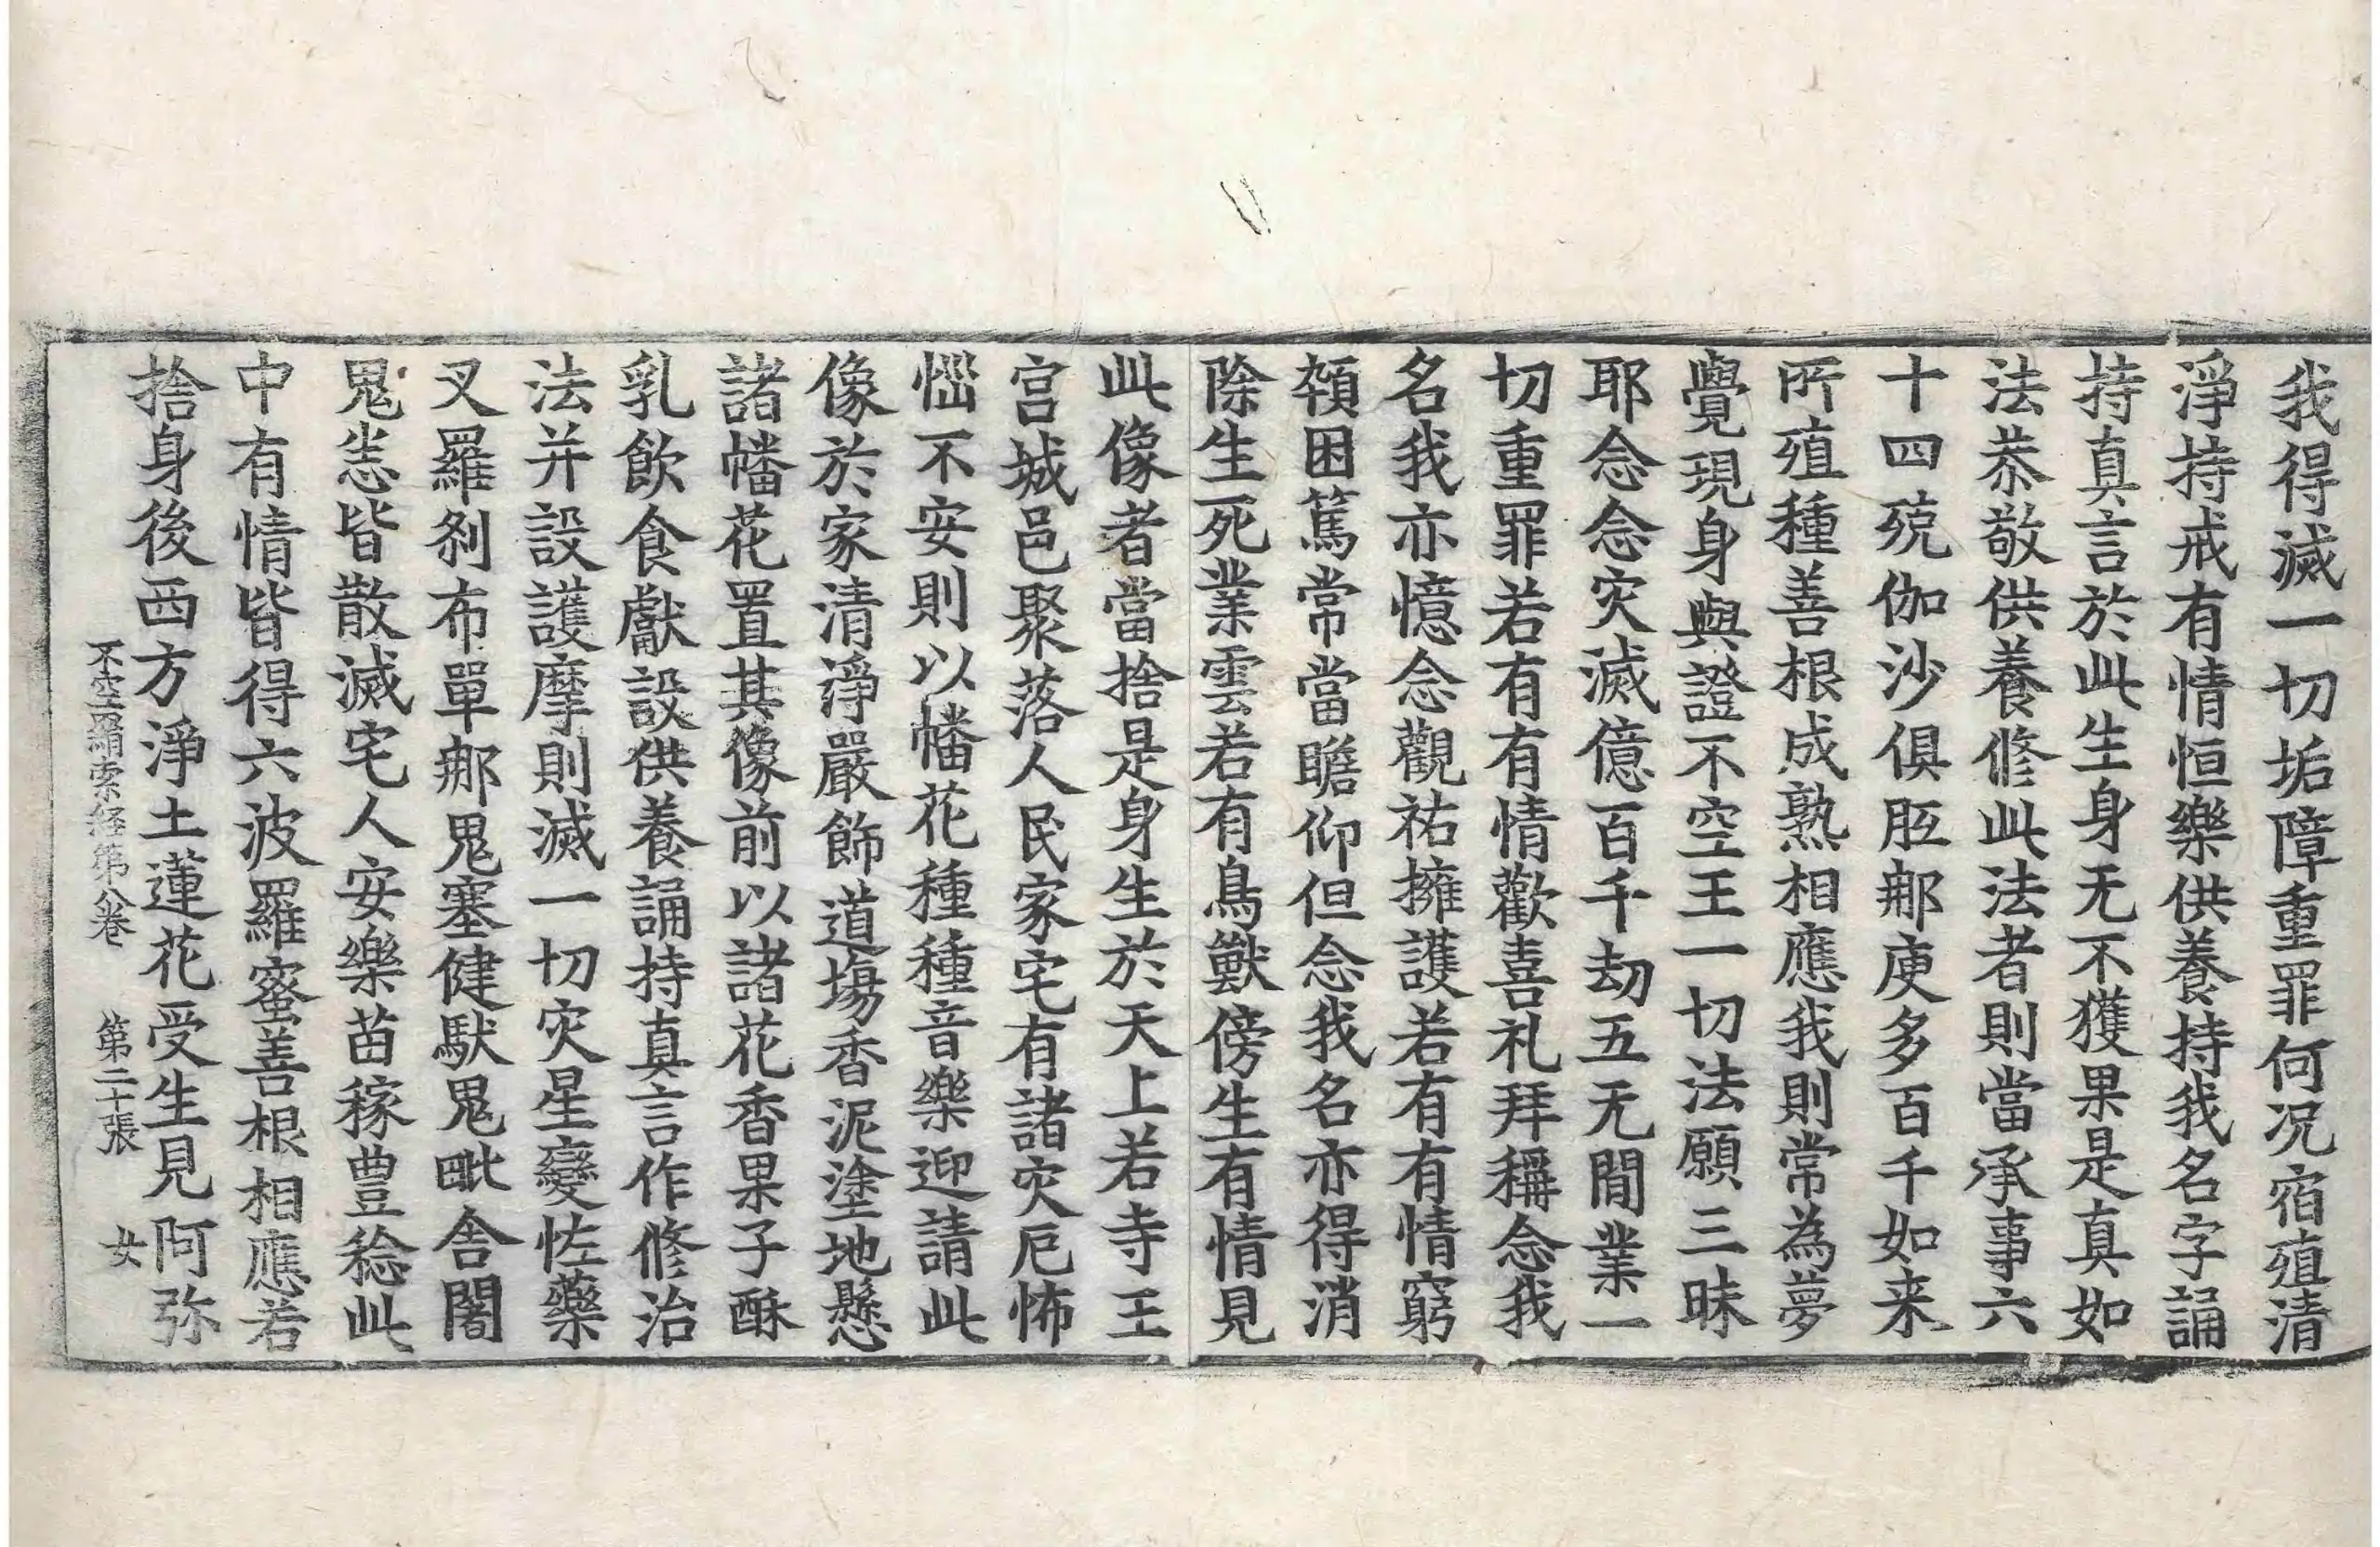 我得滅一切垢障重罪何况宿殖清
淨持戒有情恒樂供養持我名字誦
持真言於此生身无不獲果是真如
法恭敬供養修此法者則當承事六
十四殑伽沙俱胝那庾多百千如来
所殖種善根成熟相應我則常為夢
覺現身與證不空王一切法願三昧
耶念念灾滅億百千劫五无間業一
切重罪若有有情歡喜礼拜稱念我
名我亦憶念觀祐擁護若有有情窮
頓困篤常當瞻仰但念我名亦得消
除生死業雲若有鳥獸傍生有情見
此像者當捨是身生於天上若寺王
宫城邑聚落人民家宅有諸灾厄怖
不安則以幡花種種音樂迎請此
像於家清淨嚴飾道場香泥塗地懸
諸幡花置其像前以諸花香果子酥
乳飲食獻設供養誦持真言作修治
法并設護摩則滅一切灾星變恠藥
叉羅剎布單那鬼塞健馱鬼毗舍闍
鬼恙皆散滅宅人安樂苗稼豊稔此
中有情皆得六波羅蜜善根相應若
捨身後西方淨土蓮花受生見阿弥
不空羂索経第八卷 第二十張 女